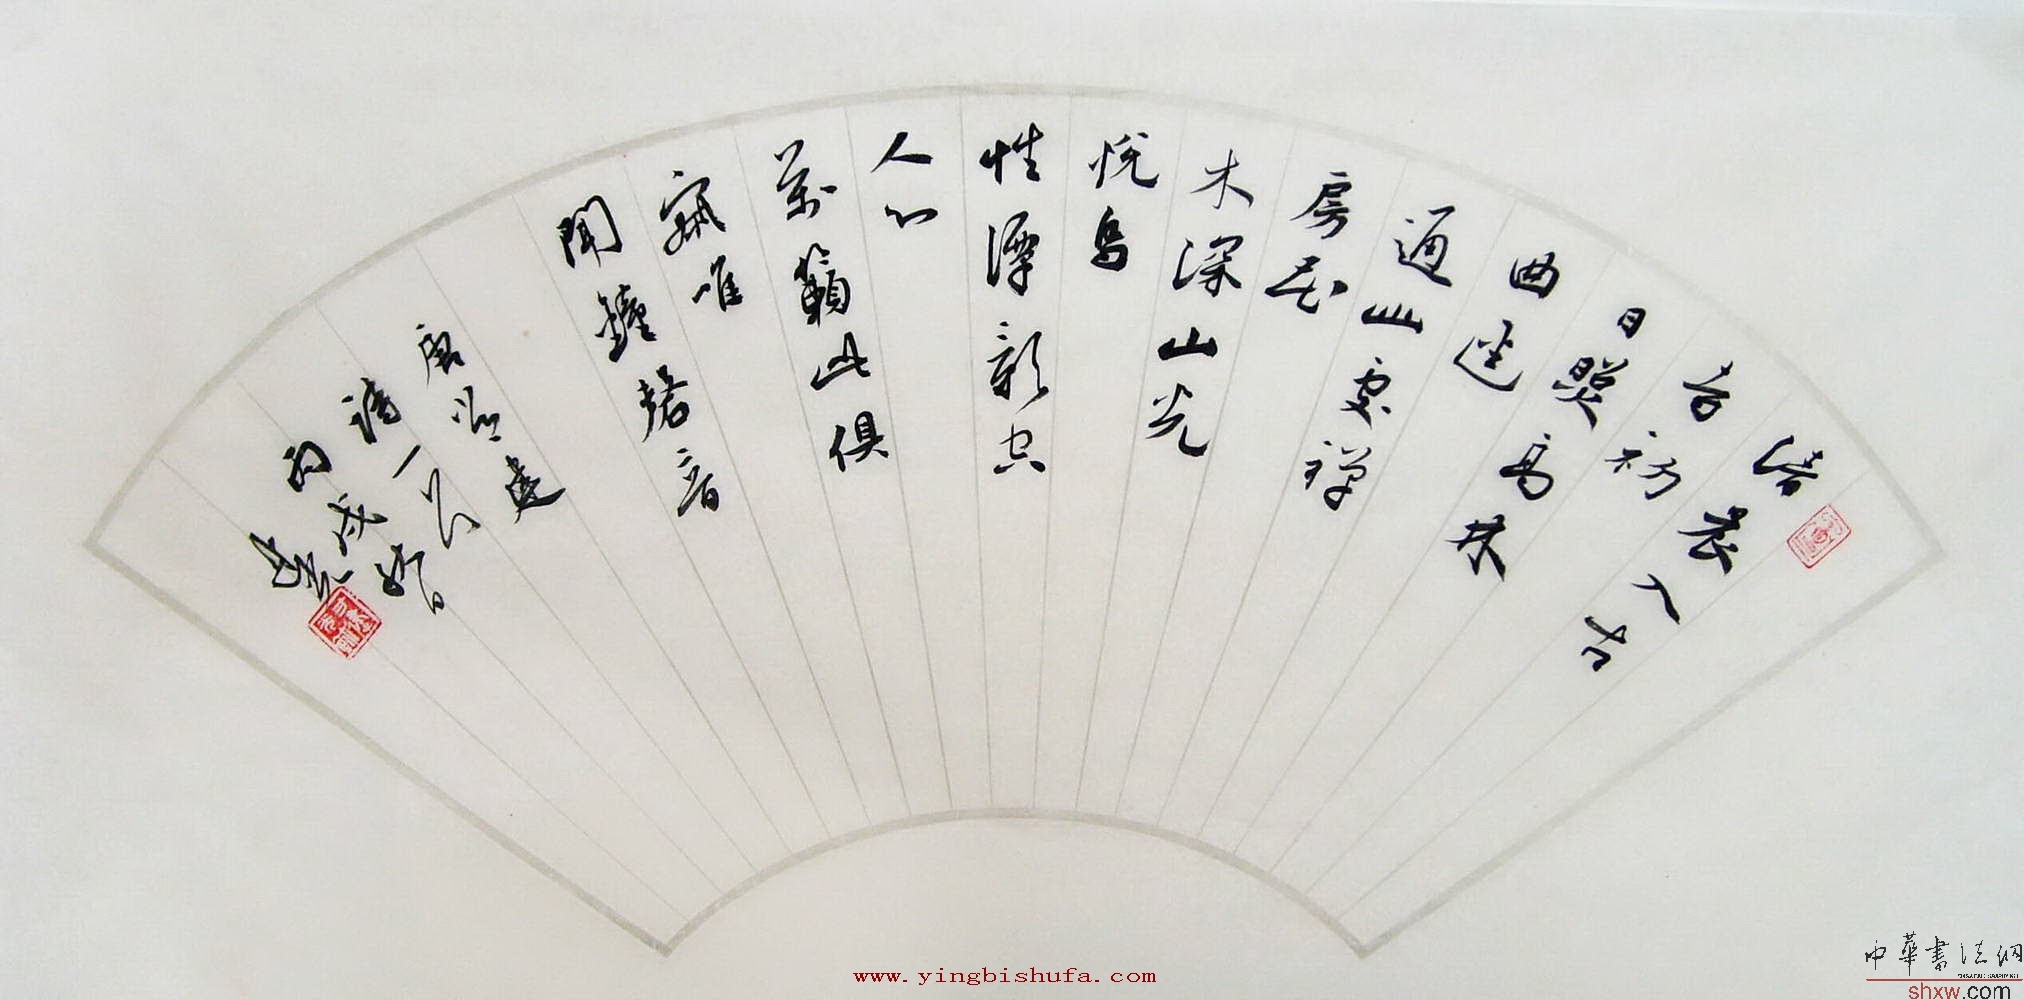 清
晨入古
寺初
日照高林
曲迳
通幽處禅
房花
木深山光
悦鸟
性潭影空
人心
萬籟此俱
寂唯
聞鐘磬音
唐常建
詩一首
丙戌
www.yingbishufa.com
中華書法網
shxw.com